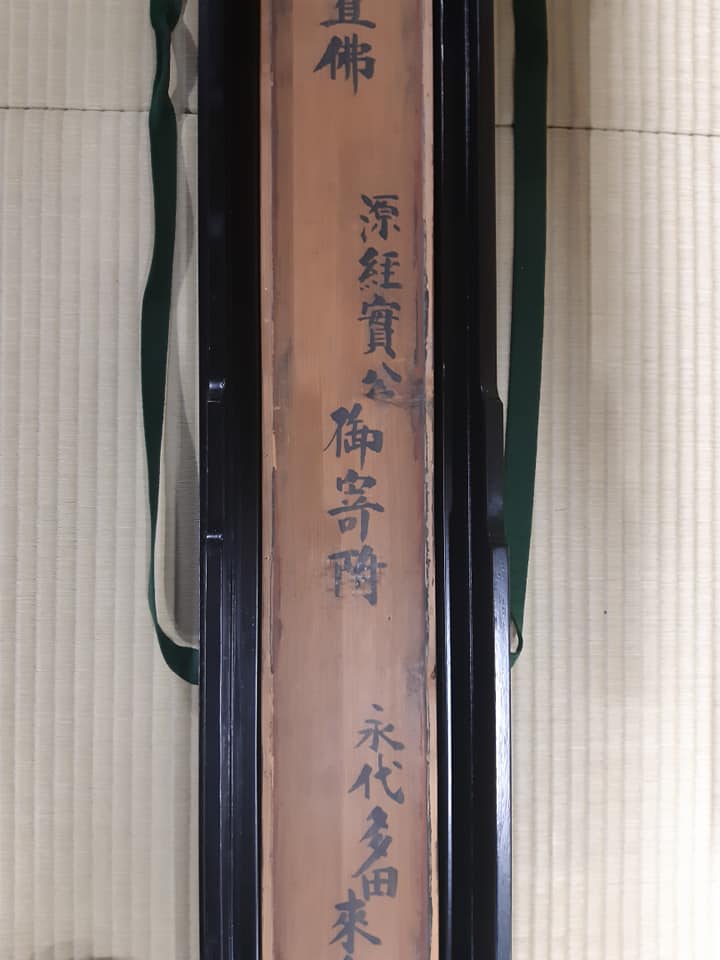 佛
源経實公
御寄附
永代多田來